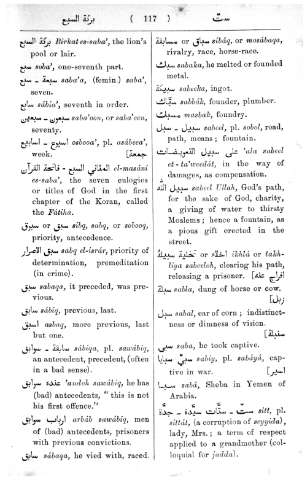 بركة السبع ( 117 ) ست
بركة السبع Birket es-saba', the lion's
pool or lair.
سبع saba', one-seventh part.
سبعة - سبع saba'a, (femin) saba',
seven.
سابع sâbia', seventh in order.
سبعون - سبعين saba'oon, or saba'een,
seventy.
اسبوع - اسابيع osbooa', pl. asâbeea',
week. [جمعة]
المثاني السبع - فاتحة القرآن el-masâni
es-saba', the seven eulogies
or titles of God in the first
chapter of the Koran, called
the Fâtiha.
سبق or سبوق sibq, sabq, or sobooq,
priority, antecedence.
سبق الاصرار sabq el-israr, priority of
determination, premeditation
(in crime).
سبق sabaqa, it preceded, was pre-
vious.
سابق sâbiq, previous, last.
اسبق asbaq, more previous, last
but one.
سابقة - سوابق sâbiqa, pl. sawâbiq,
an antecedent, precedent, (often
in a bad sense).
عنده سوابق 'andoh sawâbiq, he has
(bad) antecedents, "this is not
his first offence."
ارباب سوابق arbâb sawâbiq, men
of (bad) antecedents, prisoners
with previous convictions.
سابق sâbaqa, he vied with, raced.
سباق or مسابقة sibâq, or mosâbaqa,
rivalry, race, horse-race.
سبك sabaka, he melted or founded
metal.
سبيكة sabeeka, ingot.
سباك sabbâk, founder, plumber.
مسبك masbak, foundry.
سبيل - سبل sabeel, pl. sobol, road,
path, means; fountain.
على سبيل التعويضات 'ala sabeel
et-ta'weedât, in the way of
damages, as compensation.
سبيل الله sabeel Ullah, God's path,
for the sake of God, charity,
a giving of water to thirsty
Moslems; hence a fountain, as
a pious gift erected in the
street.
اخلاء or تخلية سبيله ikhlâ or takh-
liya sabeeloh, clearing his path,
releasing a prisoner. [افراج عنه]
سبلة sabla, dung of horse or cow.
[زبل]
سبل sabal, ear of corn; indistinct-
ness or dimness of vision.
سبى saba, he took captive.
سبي - سبايا sabiy, pl. sabâyâ, cap-
tive in war. [اسير]
سبا sabâ, Sheba in Yemen of
Arabia.
ست - ستات - جدة sitt, pl.
sittât, (a corruption of seyyida),
lady, Mrs.; a term of respect
applied to a grandmother (col-
loquial for jadda).